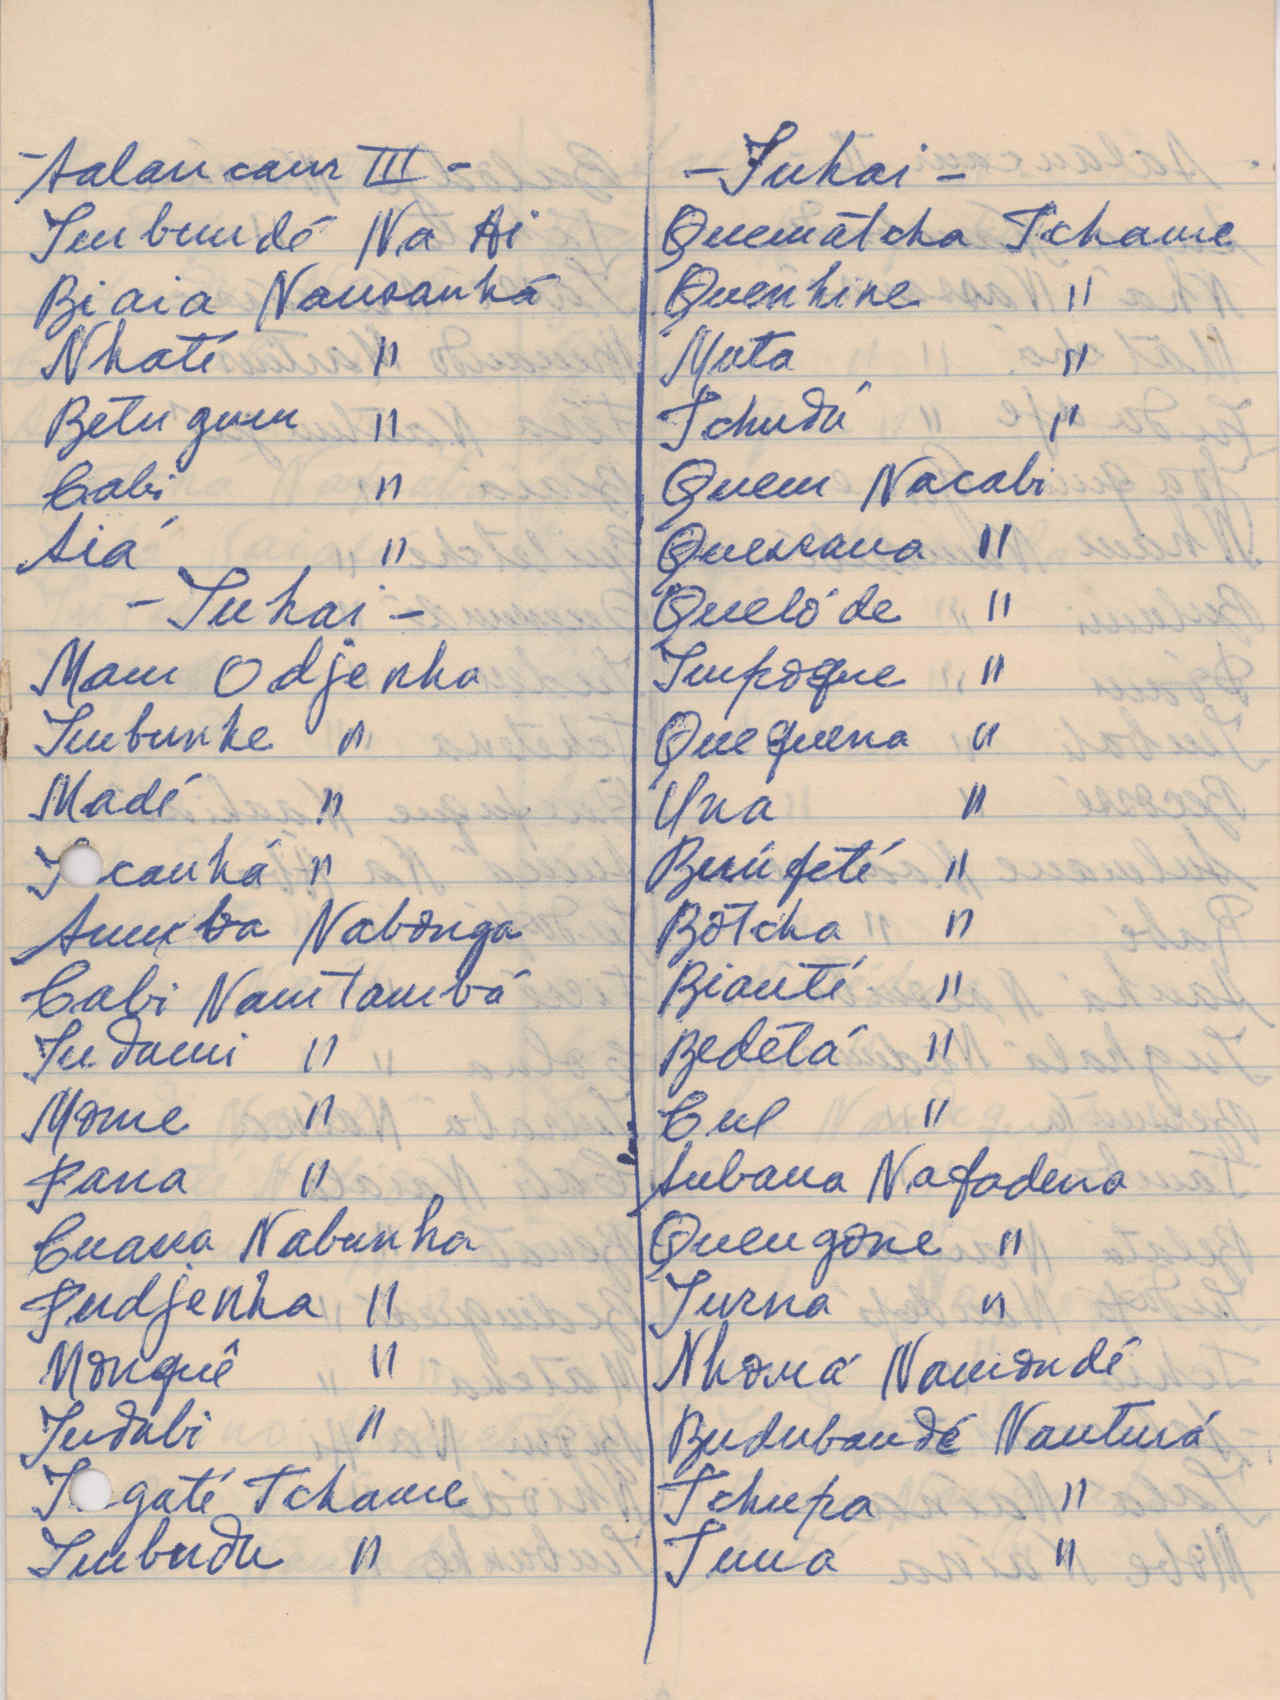 - Aalancam III -
Imbumdé Na Ai
Biaia Nansanhá
Nhaté "
Betu gum "
Cabi "
Aiá "
- Inhai -
Mam Odjenha
Imbunhe "
Madé "
canhá "
Nabonga
Cabi Namtambá
Indami "
Mome "
Fana "
Cuana Nabunha
Fudjenha "
Monquê "
Indubi "
gaté Tchame
Imbudu "
- Inhai -
Quemátcha Tchame
Quenhine "
Muta "
Tchudú "
Quem Nacabi
Quessana "
Quelóde "
Impoque "
Quequena "
Una "
Bunfeté "
Botcha "
Bianté "
Bedetá "
Cul "
Aubana Nafadena
Quengone "
Iurna "
Nhomá Namondé
Budubandé Nanturá
Tchupa "
Tuna "